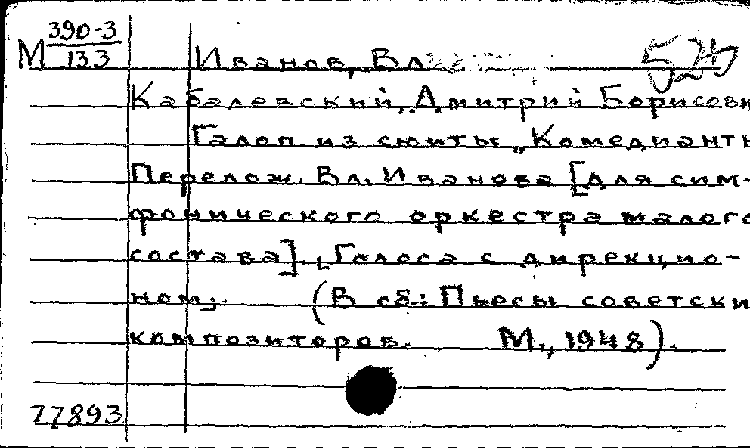 М 390-3/13.3 Иванов, Вл. 52
Кабалевский, Дмитрий Борисови
Галоп из сюиты „Комедианты
Перелож. Вл. Иванова [для сим-
фонического оркестра малого
состава]. [Голоса с дирекцио-
ном]. (В сб.: Пьесы советски
композиторов. М., 1948).
77893